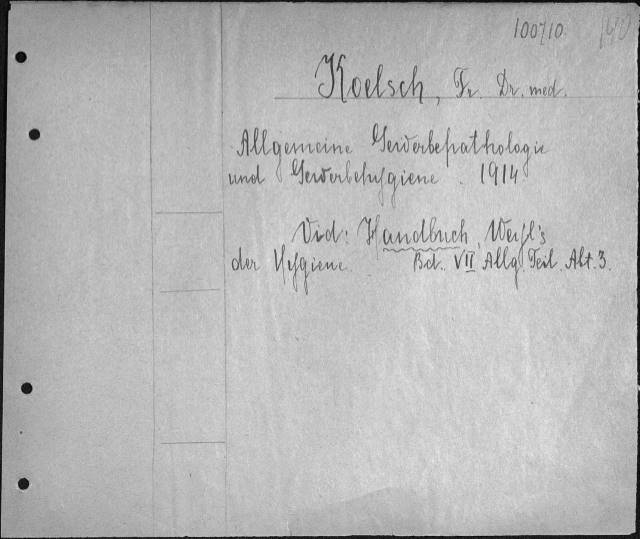 100710.
Koelsch, Fr. Dr. med.
Allgemeine Gewerbepathologie
und Gewerbehygiene. 1914
Vid: Handbuch, Weyl's
der Hygiene. Bd. VII Allg. Teil. Abt. 3.